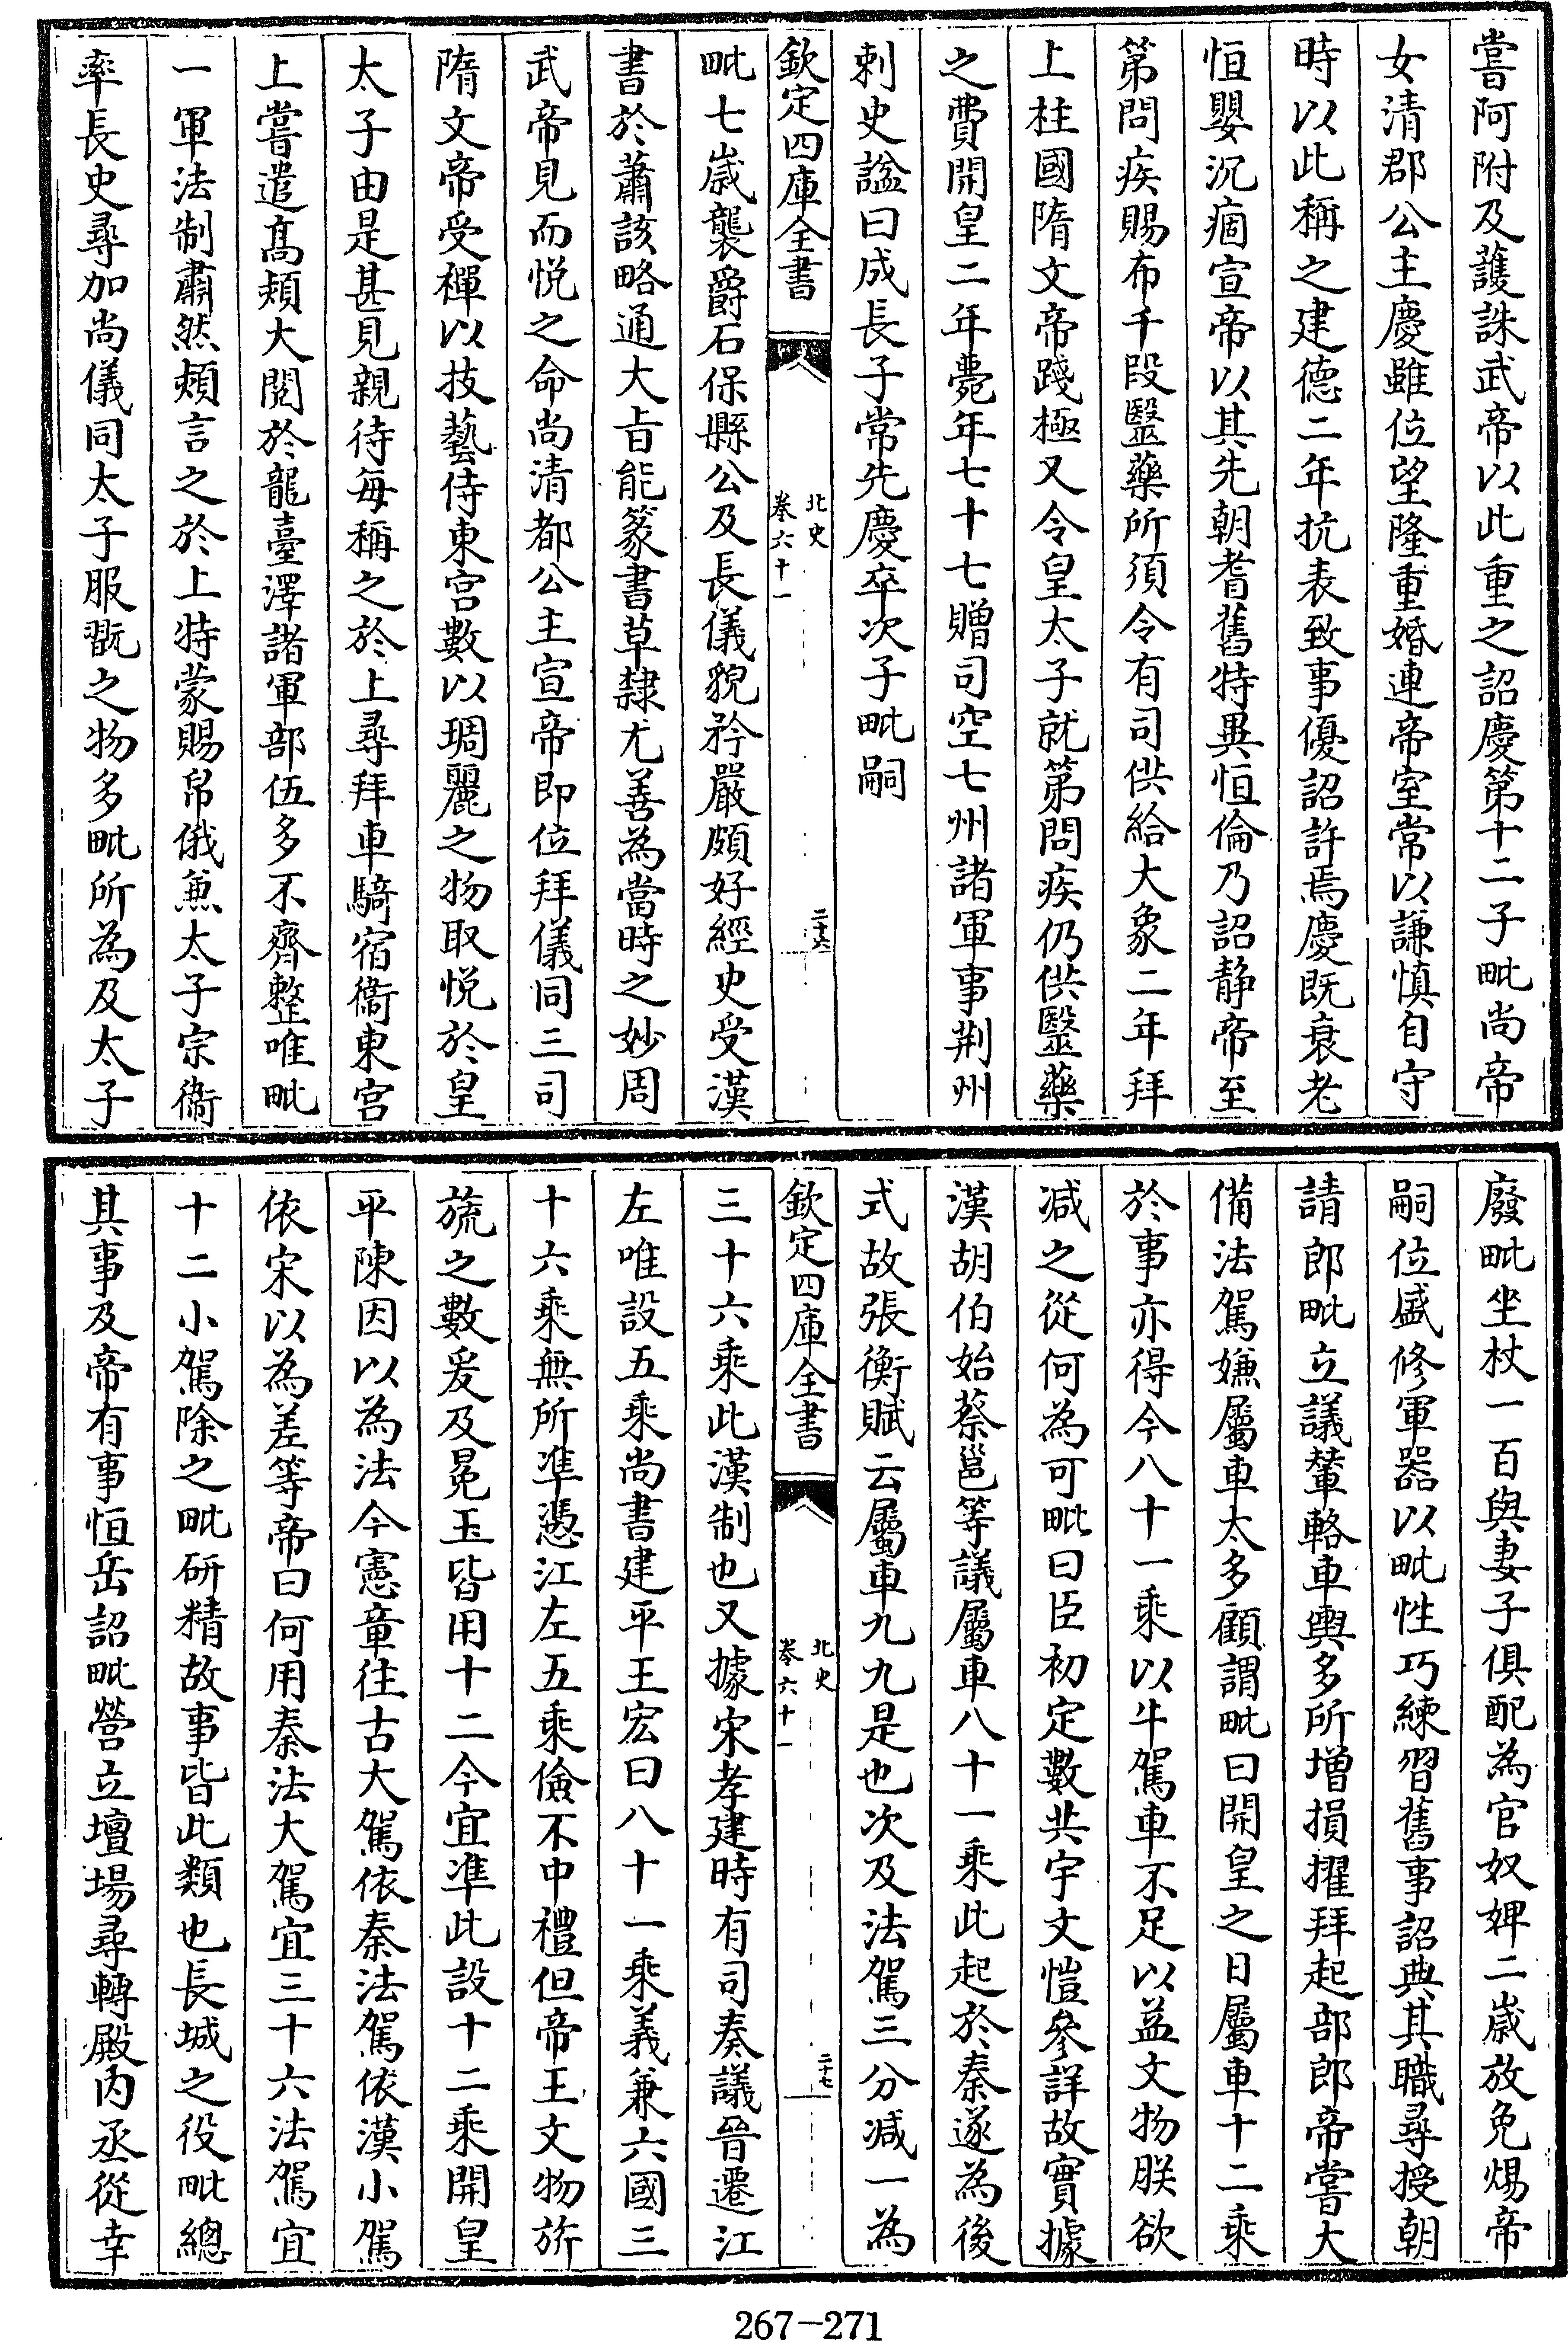 嘗阿附及䕶誅武帝以此重之詔慶第十二子㽬尚帝
女清郡公主慶雖位望隆重婚連帝室常以謙慎自守
時以此稱之建德二年抗表致事優詔許焉慶既衰老
恒嬰沉痼宣帝以其先朝耆舊特異恒倫乃詔静帝至
第問疾賜布千段毉藥所須令有司供給大象二年拜
上柱國隋文帝踐極又令皇太子就第問疾仍供毉藥
之費開皇二年薨年七十七贈司空七州諸軍事荆州
刺史諡曰成長子常先慶卒次子㽬嗣
欽定四庫全書
北史
卷六十一
二十六
㽬七歳襲爵石保縣公及長儀貌矜嚴頗好經史受漢
書於蕭該略通大㫖能篆書草隸尤善為當時之妙周
武帝見而悦之命尚清都公主宣帝即位拜儀同三司
隋文帝受禪以技藝侍東宫數以琱麗之物取悦於皇
太子由是甚見親待每稱之於上尋拜車騎宿衞東宫
上嘗遣髙熲大閱於龍臺澤諸軍部伍多不齊整唯㽬
一軍法制肅然熲言之於上特蒙賜帛俄兼太子宗衞
率長史尋加尚儀同太子服翫之物多㽬所為及太子
廢㽬坐杖一百與妻子俱配為官奴婢二歳放免煬帝
嗣位盛修軍器以㽬性巧練習舊事詔典其職尋授朝
請郎㽬立議輦輅車輿多所增損擢拜起部郎帝嘗大
備法駕嫌屬車太多顧謂㽬曰開皇之日屬車十二乘
於事亦得今八十一乘以牛駕車不足以益文物朕欲
減之從何為可㽬曰臣初定數共宇文愷參詳故實據
漢胡伯始蔡邕等議屬車八十一乘此起於秦遂為後
式故張衡賦云屬車九九是也次及法駕三分減一為
欽定四庫全書
北史
卷六十一
二十七
三十六乘此漢制也又據宋孝建時有司奏議晉遷江
左唯設五乘尚書建平王宏曰八十一乘義兼六國三
十六乘無所凖憑江左五乘儉不中禮但帝王文物旂
旒之數爰及冕玉皆用十二今宜凖此設十二乘開皇
平陳因以為法今憲章往古大駕依秦法駕依漢小駕
依宋以為差等帝曰何用秦法大駕宜三十六法駕宜
十二小駕除之㽬研精故事皆此類也長城之役㽬總
其事及帝有事恒岳詔㽬營立壇場尋轉殿内丞從幸
267-271